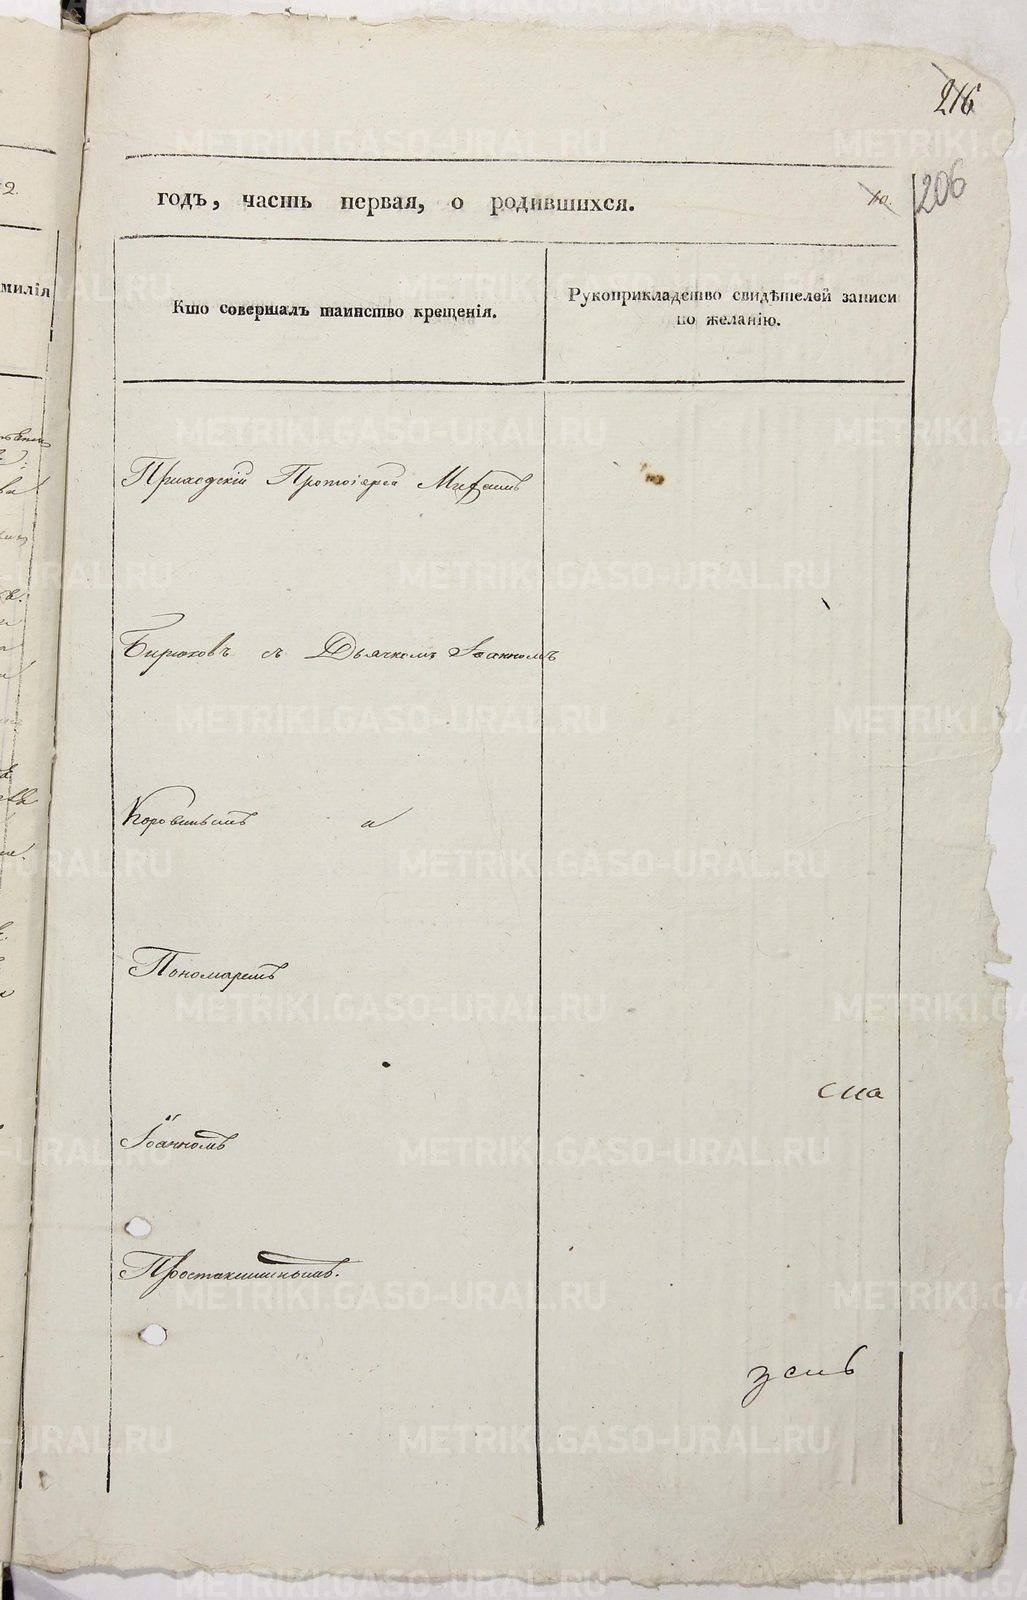 216
206
10.
2.
годъ, часть первая, о родившихся.
милія
Кто совершалъ таинство крещенія.
Рукоприкладство свидѣтелей записи
по желанію.
Приходскій Протоіерей
Бирюковъ съ Дьячкомъ Іоанномъ
Коровинымъ и
Пономаремъ
Іоанномъ
Простакишинымъ.
METRIKI.GASO-URAL.RU